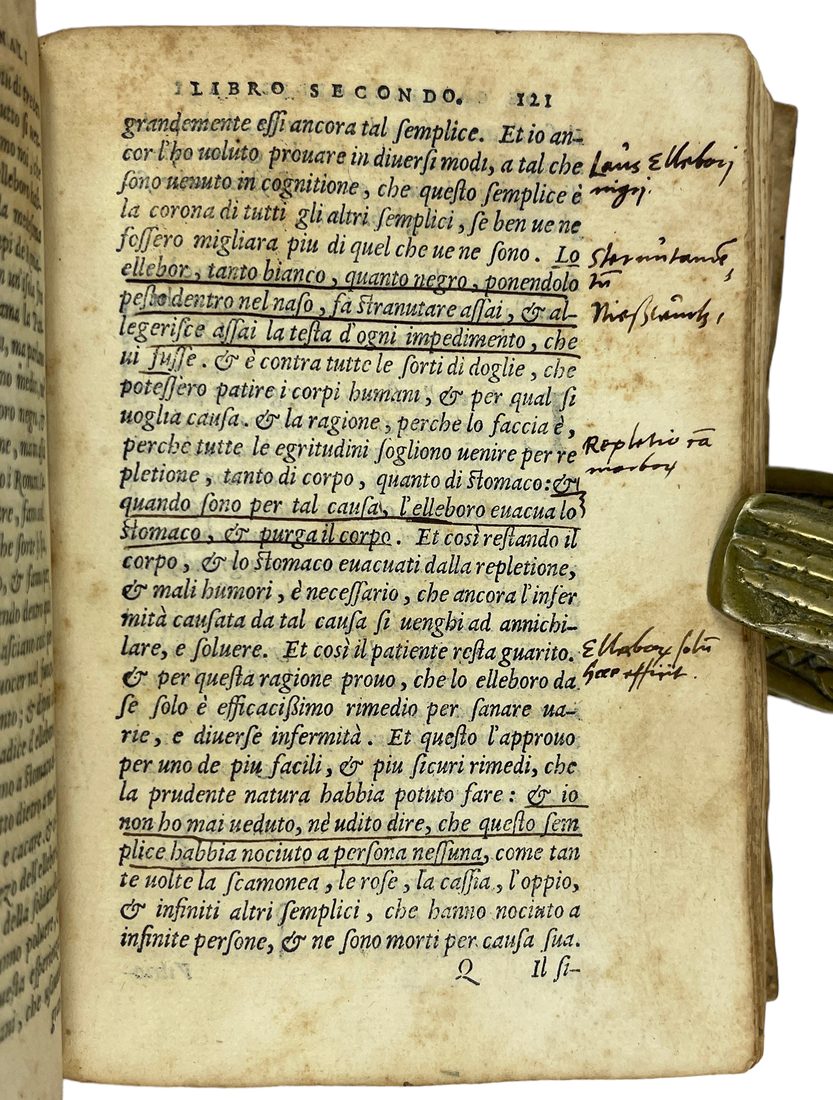 LIBRO SECONDO. 121
grandemente eſſi ancora tal ſemplice. Et io an-
cor l'ho uoluto prouare in diuerſi modi, a tal che
ſono uenuto in cognitione, che queſto ſemplice è
la corona di tutti gli altri ſemplici, ſe ben ue ne
foſſero migliara piu di quel che ue ne ſono. Lo
ellebor, tanto bianco, quanto negro, ponendolo
peſto dentro nel naſo, fa ſtranutare aſſai, & al-
legeriſce aſſai la teſta d'ogni impedimento, che
ui fuſſe. & è contra tutte le ſorti di doglie, che
poteſſero patire i corpi humani, & per qual ſi
uoglia cauſa. & la ragione, perche lo faccia è,
perche tutte le egritudini ſogliono uenire per re
pletione, tanto di corpo, quanto di ſtomaco: &
quando ſono per tal cauſa, l'elleboro euacua lo
ſtomaco, & purga il corpo. Et così reſtando il
corpo, & lo ſtomaco euacuati dalla repletione,
& mali humori, è neceſſario, che ancora l'infer
mità cauſata da tal cauſa ſi uenghi ad annichi-
lare, e ſoluere. Et così il patiente reſta guarito.
& per queſta ragione prouo, che lo elleboro da
ſe ſolo è efficacißimo rimedio per ſanare ua-
rie, e diuerſe infermità. Et queſto l'approuo
per uno de piu facili, & piu ſicuri rimedi, che
la prudente natura habbia potuto fare: & io
non ho mai ueduto, nè udito dire, che queſto ſem
plice habbia nociuto a perſona neſſuna, come tan
te uolte la ſcamonea, le roſe, la caſſia, l'oppio,
& infiniti altri ſemplici, che hanno nociuto a
infinite perſone, & ne ſono morti per cauſa ſua.
Q Il ſi-
Laus Ellebori
nigri.
Repletio